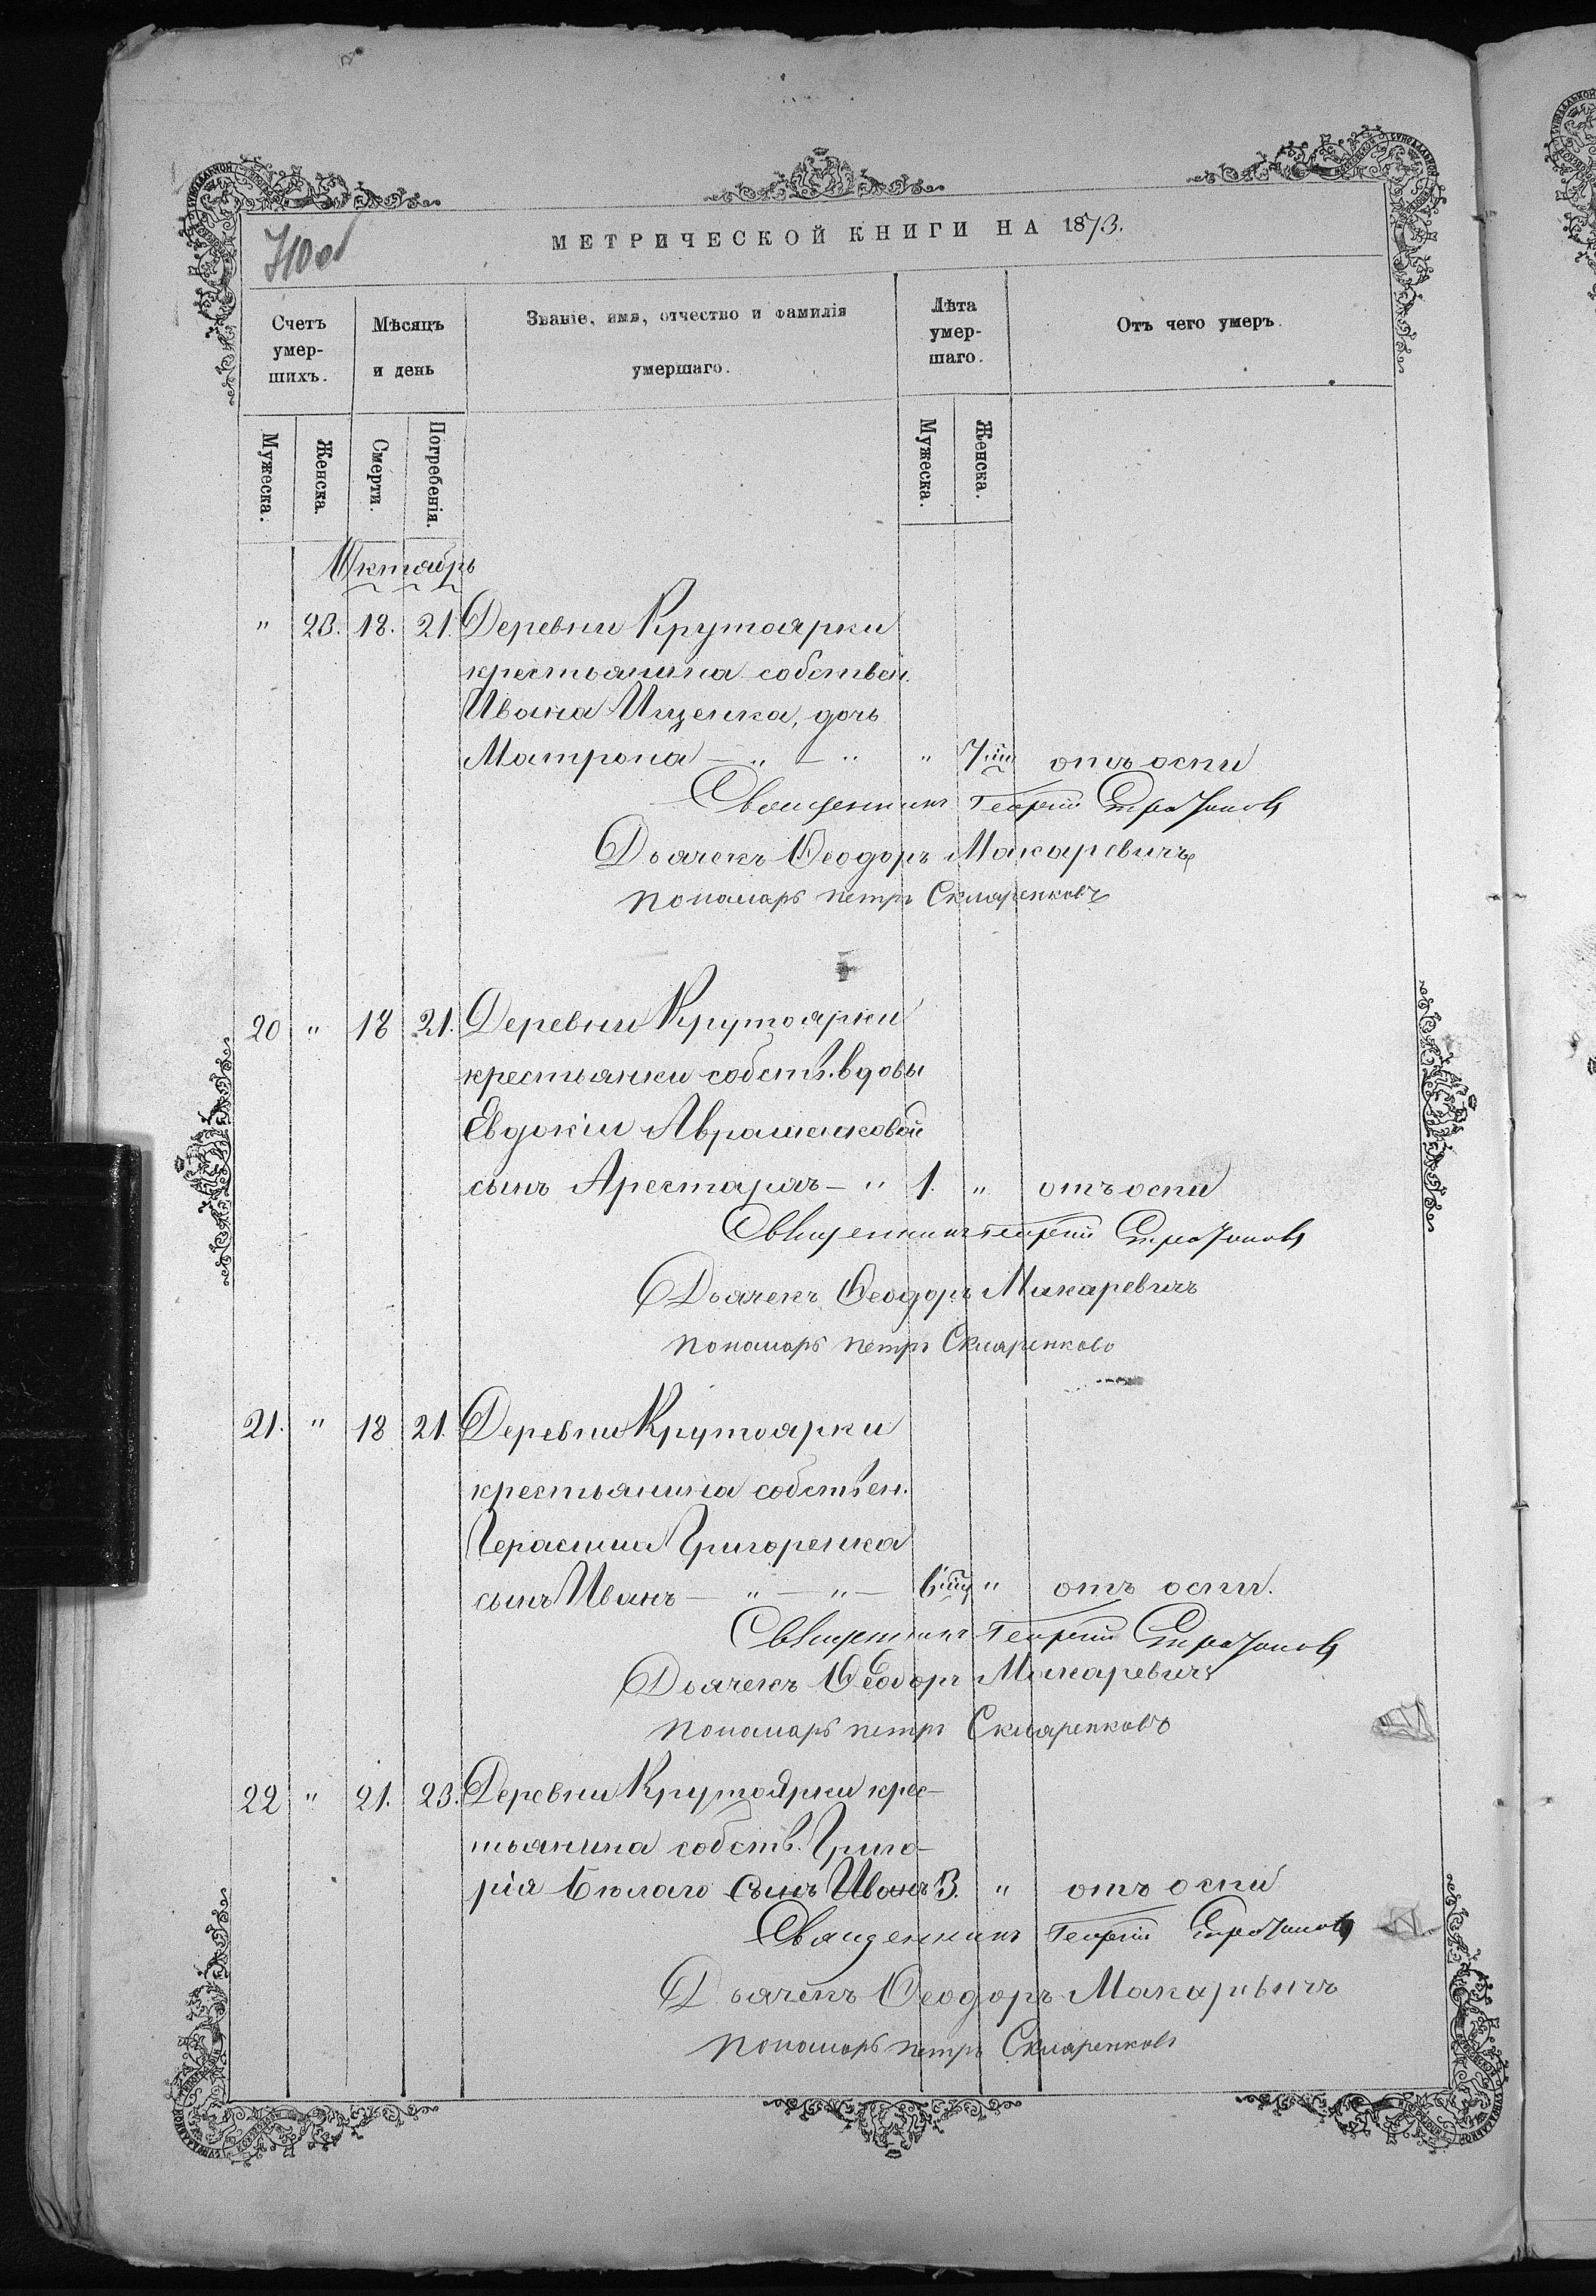 710 об
МЕТРИЧЕСКОЙ КНИГИ НА 1873.
Счетъ умер-шихъ.
Мѣсяцъ и день
Званіе, имя, отчество и фамилія умершаго.
Лѣта умер-шаго.
Отъ чего умеръ.
Мужеска.
Женска.
Смерти.
Погребенія.
Мужеска.
Женска.
Октябрь
" 23. 18. 21. Деревни Крутоярки
крестьянина собствен.
Ивана Ищенка, дочь
Матрона - " - " " 7 отъ оспи
Священникъ Георгій
Дьячекъ Ѳеодоръ Макаревичъ
пономарь петръ Скляренковъ
20 " 18 21. Деревни Крутоярки
крестьянки собств. вдовы
Евдокіи Авраменковой
сынъ Арестархъ - " 1. " отъ оспи
Священникъ Георгій
Дьячекъ Ѳеодоръ Макаревичъ
пономарь петръ Скляренковъ
21. " 18 21. Деревни Крутоярки
крестьянина собствен.
Герасима Григоренка
сынъ Иванъ - " - " - 6 " отъ оспи.
Священникъ Георгій
Дьячекъ Ѳеодоръ Макаревичъ
пономарь петръ Скляренковъ
22 " 21. 23. Деревни Крутоярки крес-
тьянина собств. Григо-
рія Белаго сынъ Иванъ 3. " отъ оспи
Священникъ Георгій
Дьячекъ Ѳеодоръ Макаревичъ
пономарь петръ Скляренковъ